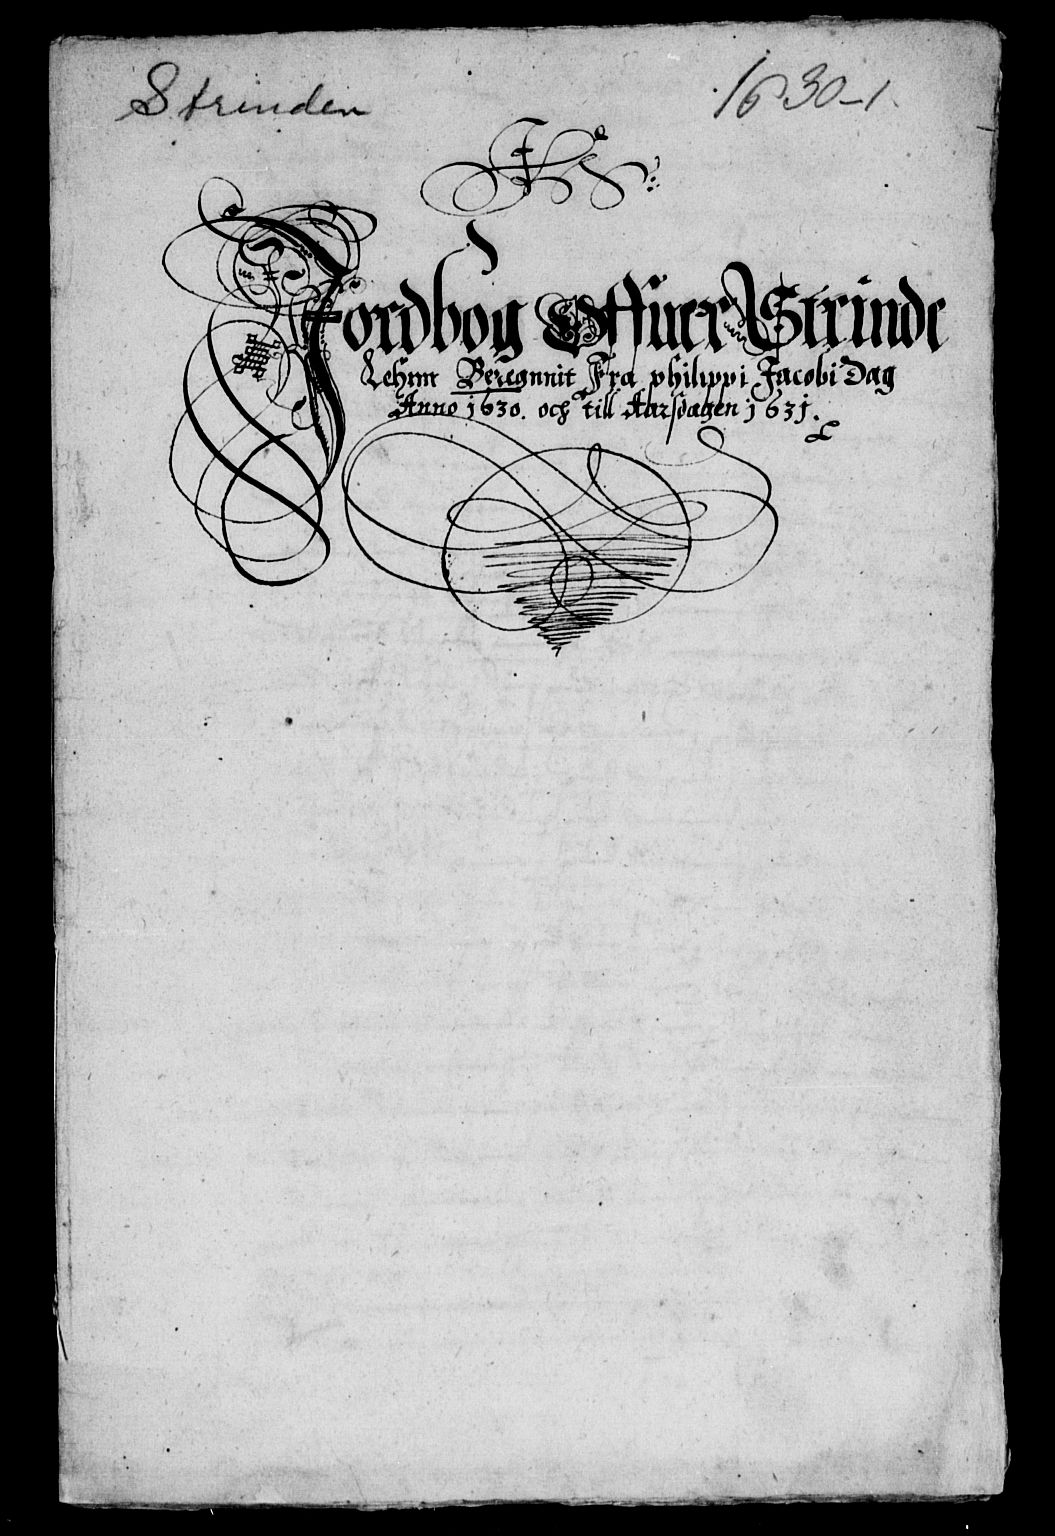 Strinden 1630-1.
Jordbog Offuer Strinde
Lehnn Beregnnit Fra philippi Jacobi Dag
Anno 1630. och till Aarsdagen 1631.